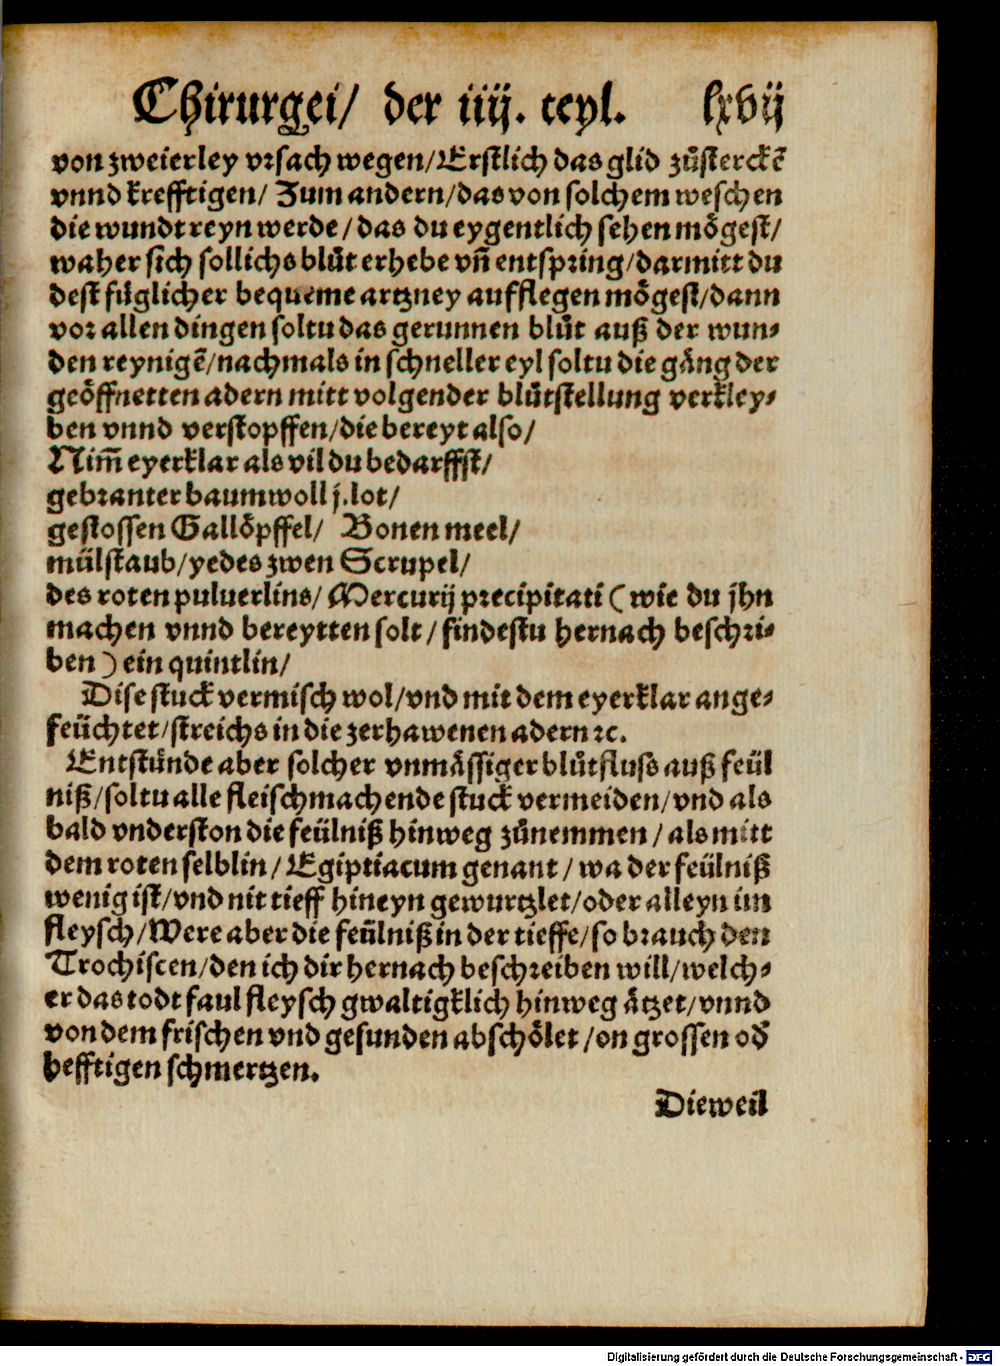 Chirurgei/ der iiij. teyl. lxvij
von zweierley vrsach wegen/Erstlich das glid zůsterckẽ
vnnd krefftigen/ Zum andern/das von solchem weschen
die wundt reyn werde/das du eygentlich sehen mögest/
waher sich sollichs blůt erhebe vñ entspring/darmitt du
dest füglicher bequeme artzney aufflegen mögest/dann
vor allen dingen soltu das gerunnen blůt auß der wun-
den reynigẽ/nachmals in schneller eyl soltu die gäng der
geöffnetten adern mitt volgender blůtstellung verkley-
ben vnnd verstopffen/die bereyt also/
Nim̃ eyerklar als vil du bedarffst/
gebranter baumwoll j.lot/
gestossen Gallöpffel/ Bonen meel/
mülstaub/yedes zwen Scrupel/
des roten puluerlins/Mercurij precipitati (wie du jhn
machen vnnd bereytten solt/findestu hernach beschri-
ben) ein quintlin/
Dise stuck vermisch wol/vnd mit dem eyerklar ange-
feüchtet/streichs in die zerhawenen adern ꝛc.
Entstünde aber solcher vnmässiger blůtfluss auß feül
niß/soltu alle fleischmachende stuck vermeiden/vnd als
bald vnderston die feülniß hinweg zůnemmen/als mitt
dem roten selblin/Egiptiacum genant/wa der feülniß
wenig ist/vnd nit tieff hineyn gewurtzlet/oder alleyn im
fleysch/Were aber die feülniß in der tieffe/so brauch den
Trochiscen/den ich dir hernach beschreiben will/welch-
er das todt faul fleysch gwaltigklich hinweg ätzet/vnnd
von dem frischen vnd gesunden abschölet/on grossen od̕
hefftigen schmertzen.
Dieweil
Digitalisierung gefördert durch die Deutsche Forschungsgemeinschaft - DFG